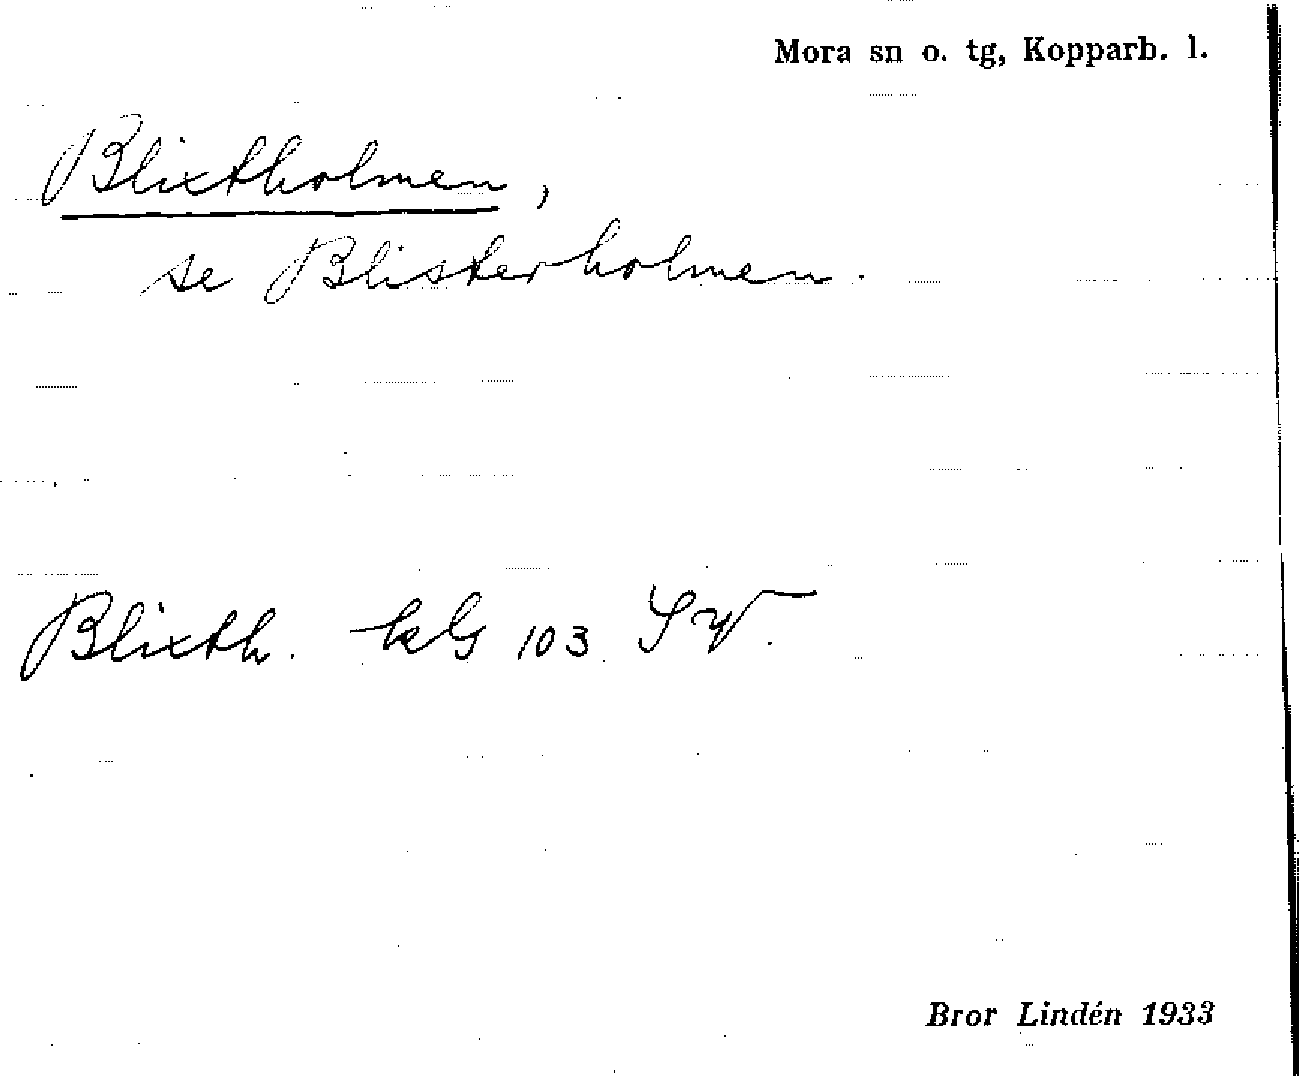 Mora sn o. tg, Kopparb. l.
Blixtholmen,
se Blisterholmen.
Blixth. 103
Bror Lindén 1933